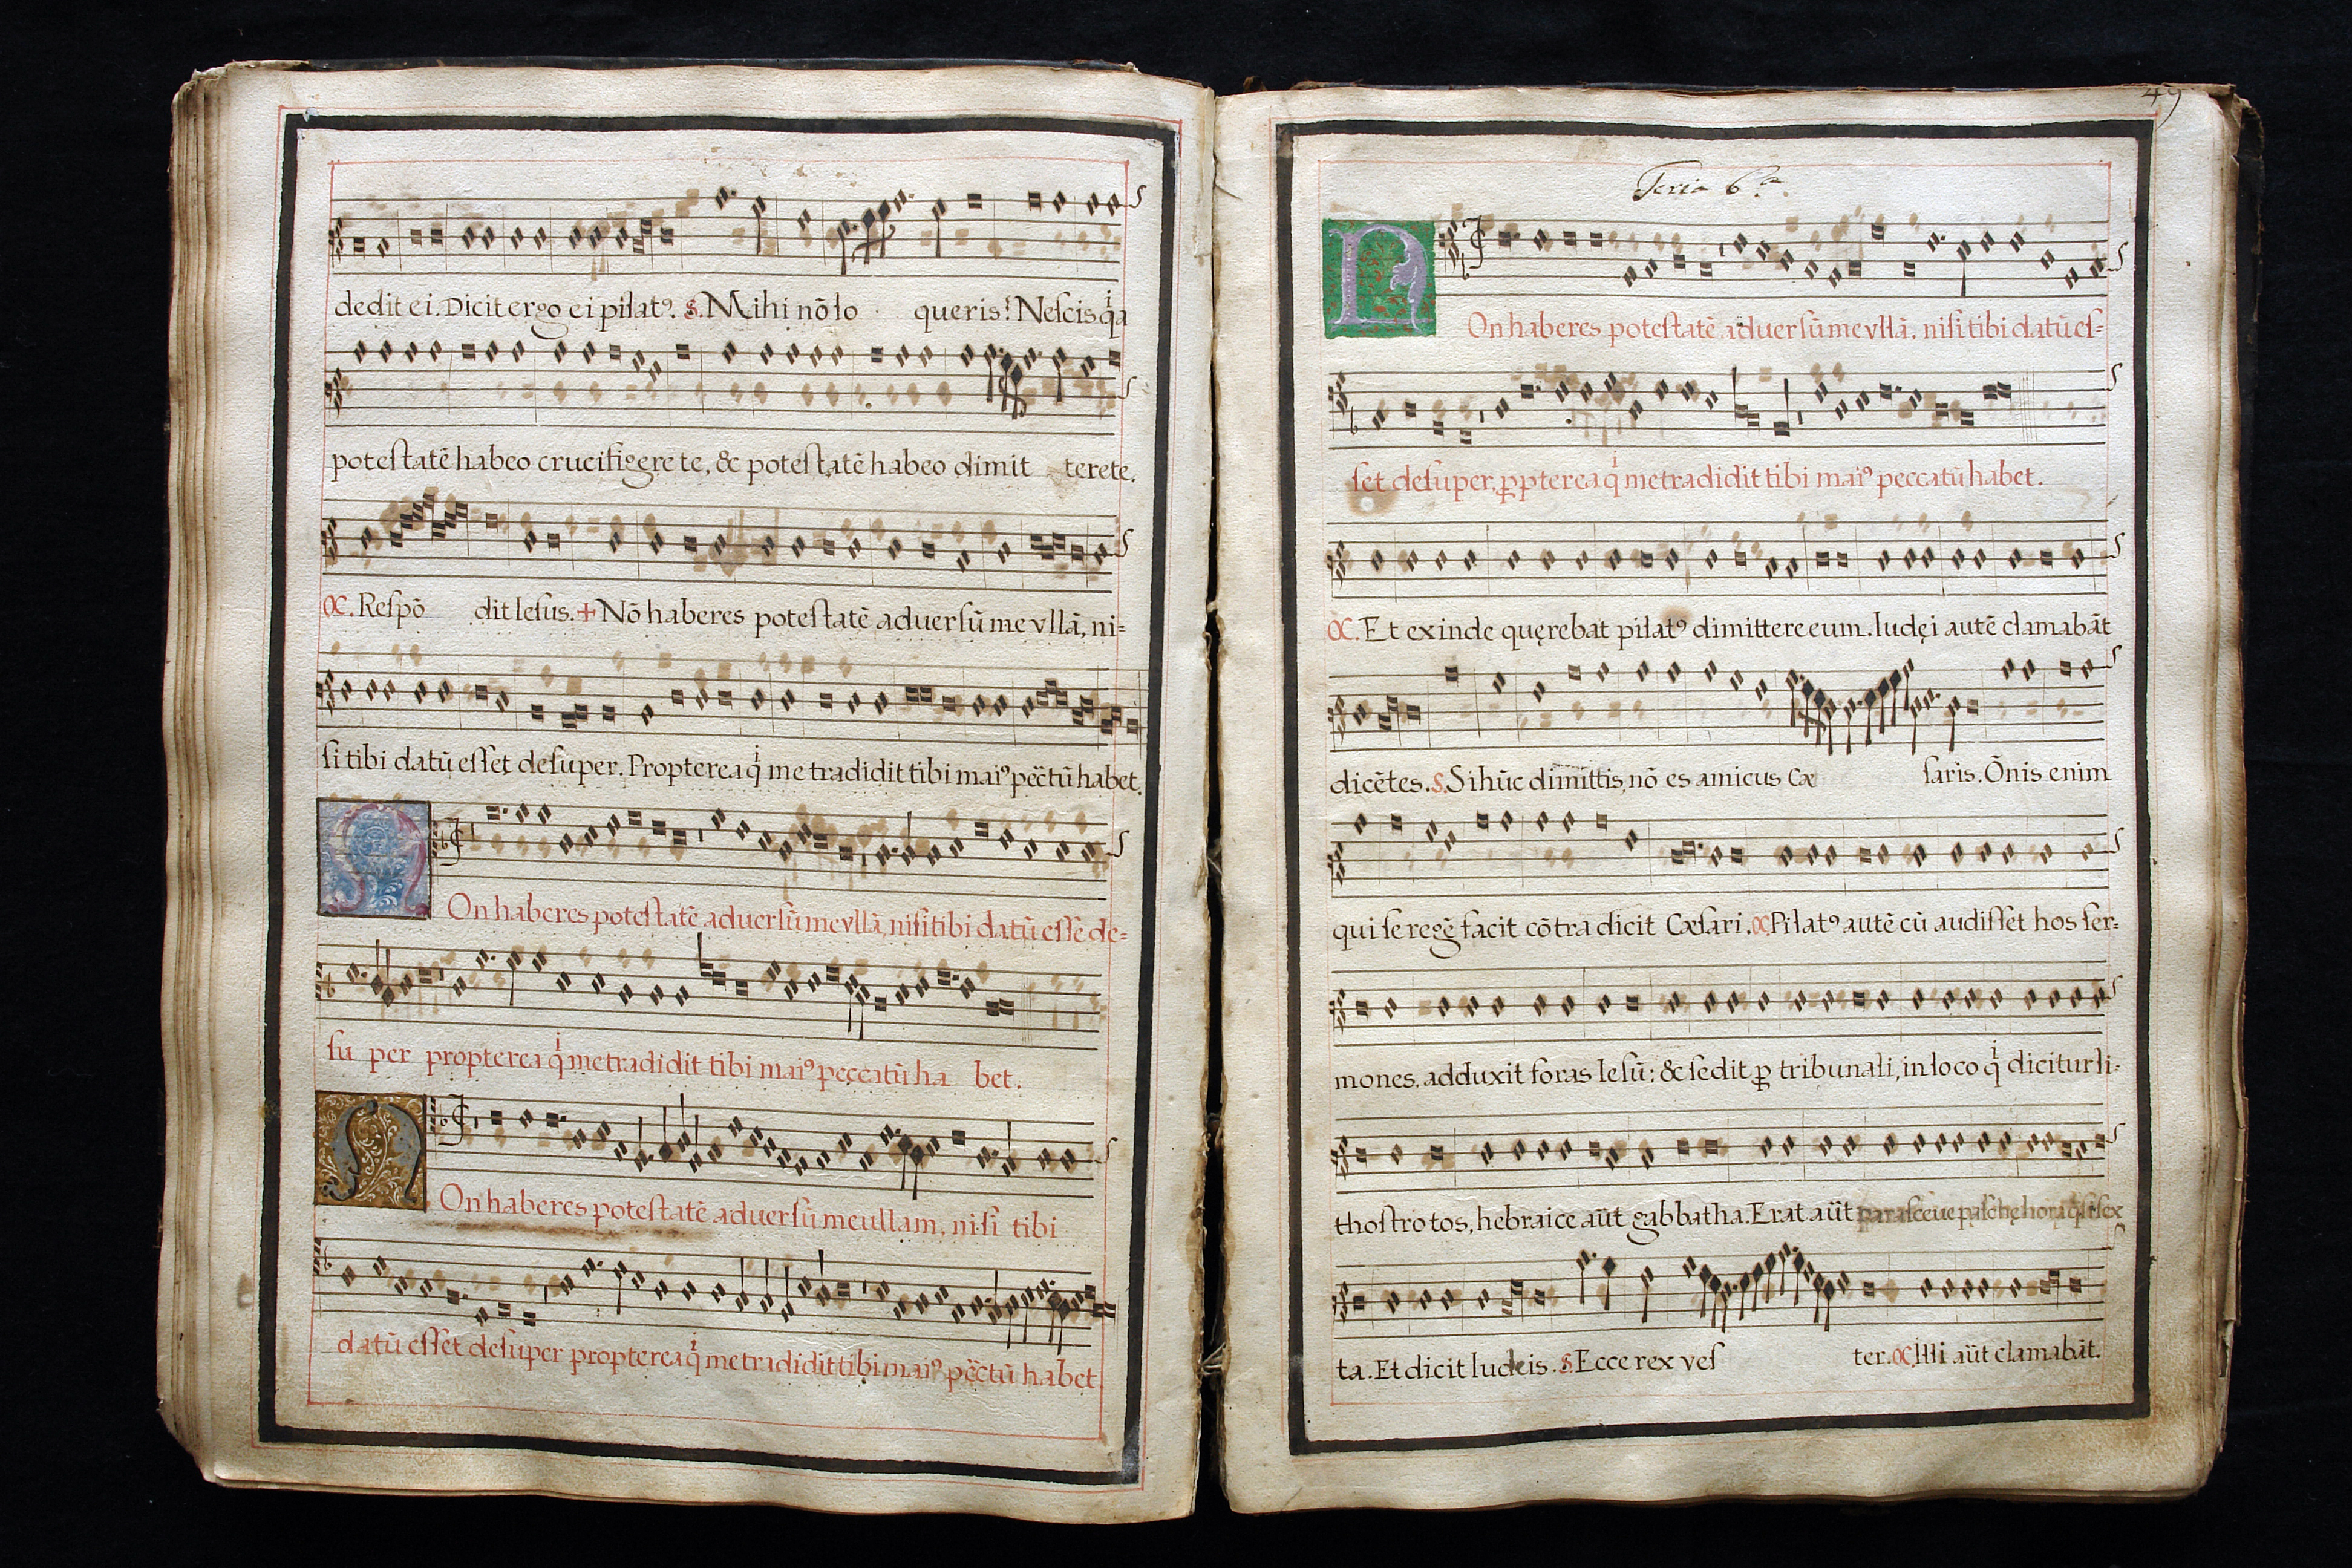 dedit ei. Dicit ergo ei pilatꝰ. S. Mihi nõ lo queris? Neſcis qͥa
poteſtatẽ habeo crucifigere te, & poteſtatẽ habeo dimit terete.
C. Reſpõ dit Ieſus. + Nõ haberes poteſtatẽ aduerſũ me vllã, ni=
ſi tibi datũ eſſet deſuper. Propterea qͥ me tradidit tibi maiꝰ pec̃tũ habet.
NOn haberes poteſtatẽ aduerſũ me vllã, niſi tibi datũ eſſe de=
ſu per propterea qͥ me tradidit tibi maiꝰ peccatũ ha bet.
NOn haberes poteſtatẽ aduerſũ me ullam, niſi tibi
datũ eſſet deſuper propterea qͥ me tradidit tibi maiꝰ pec̃tũ habet
49
Feria 6.ª
NOn haberes poteſtatẽ aduerſũ me vllã, niſi tibi datũ eſ=
ſet deſuper, ꝓpterea qͥ me tradidit tibi maiꝰ peccatũ habet.
C. Et exinde quęrebat pilatꝰ dimittere eum. Iudęi autẽ clamabãt
dicẽtes. S. Si hũc dimittis, nõ es amicus Cæ ſaris. Õnis enim
qui ſe regẽ facit cõtra dicit Cæſari. C. Pilatꝰ autẽ cũ audiſſet hos ſer=
mones, adduxit foras Ieſũ: & ſedit ꝓ tribunali, in loco qͥ dicitur li=
thoſtrotos, hebraice aũt gabbatha. Erat aũt paraſceue paſchę hora qͣſi ſex
ta. Et dicit Iudeis. S. Ecce rex veſ ter. C. Illi aũt clamabãt.